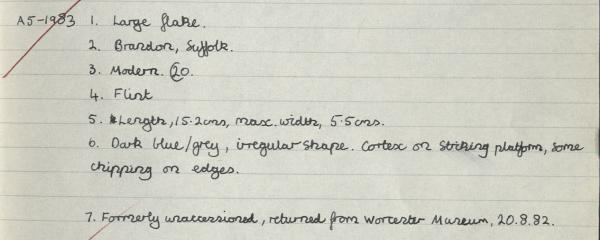 A5-1983 1. Large flake.
2. Brandon, Suffolk.
3. Modern. 20.
4. Flint
5. Length, 15.2cms, max. width, 5.5cms.
6. Dark blue/grey, irregular shape. Cortex on striking platform, some
chipping on edges.
7. Formerly unaccessioned, returned from Worcester Museum, 20.8.82.